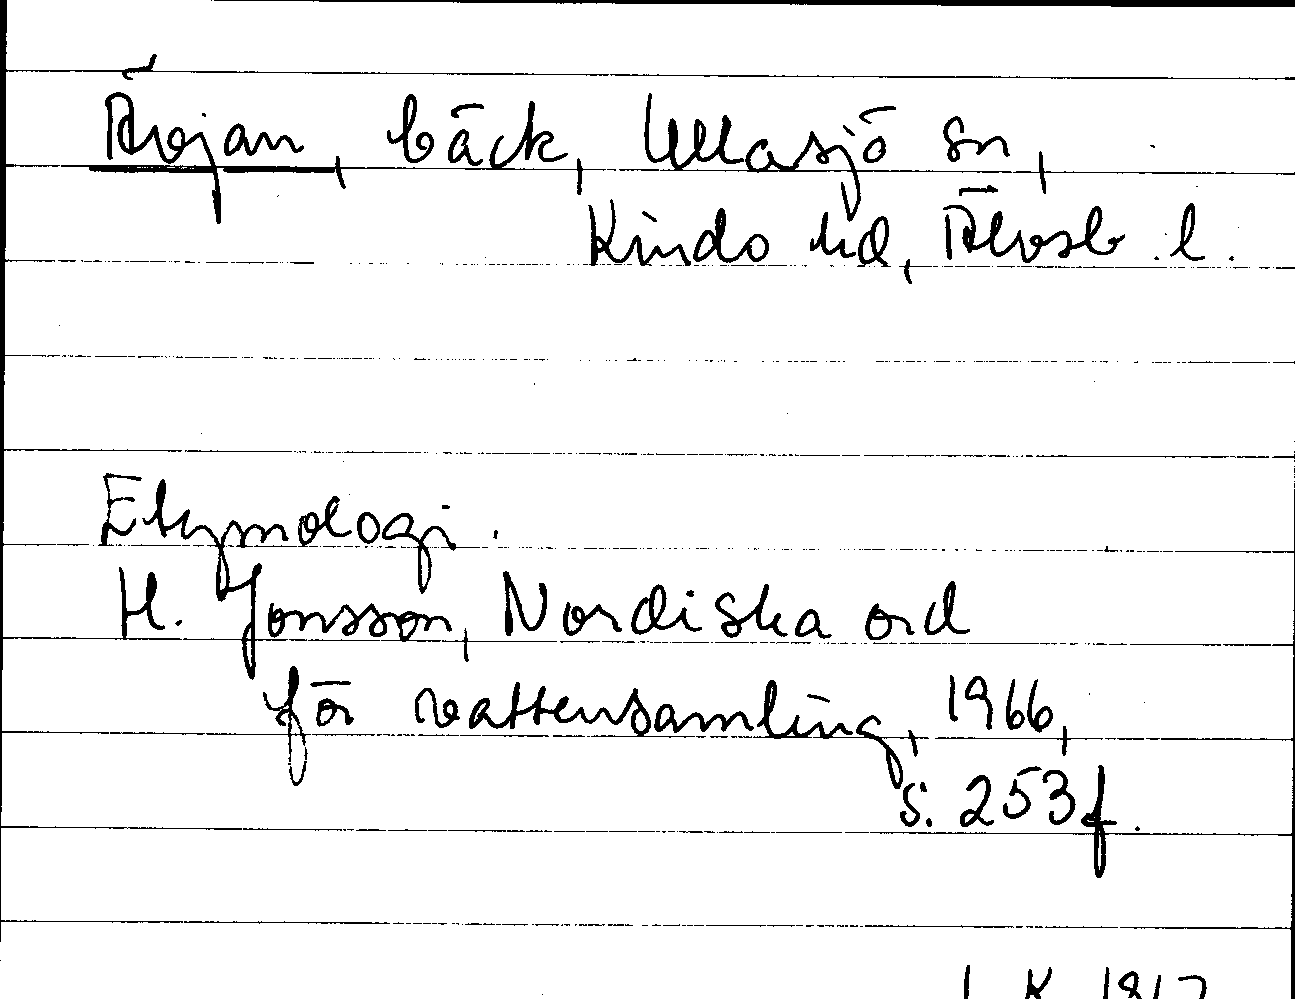 Ärojan, bäck, Ullasjö sn,
Kinds hd, Älvsb. l.
Etymologi.
H. Jonsson, Nordiska ord
för vattensamling, 1966,
s. 253 f.